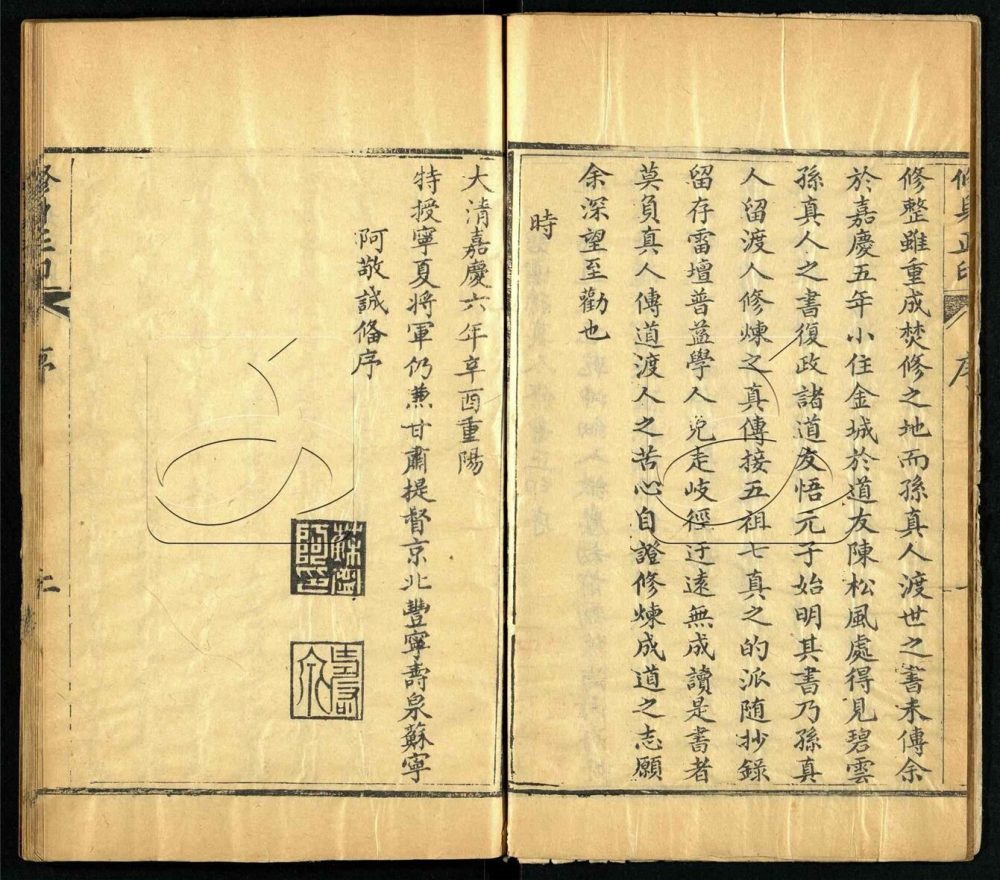 修真正印 序
修整雖重成焚修之地而孫真人渡世之書未傳余
於嘉慶五年小住金城於道友陳松風處得見碧雲
孫真人之書復政諸道友悟元子始明其書乃孫真
人留渡人修煉之真傳接五祖七真之的派随抄錄
留存雷壇普益學人免走岐徑迂遠無成讀是書者
莫負真人傳道渡人之苦心自證修煉成道之志願
余深望至勸也
時
大清嘉慶六年辛酉重陽
特授寧夏將軍仍兼甘肅提督京北豐寧壽泉蘇寧
阿敬誠俻序
蘇寧阿印
壽泉